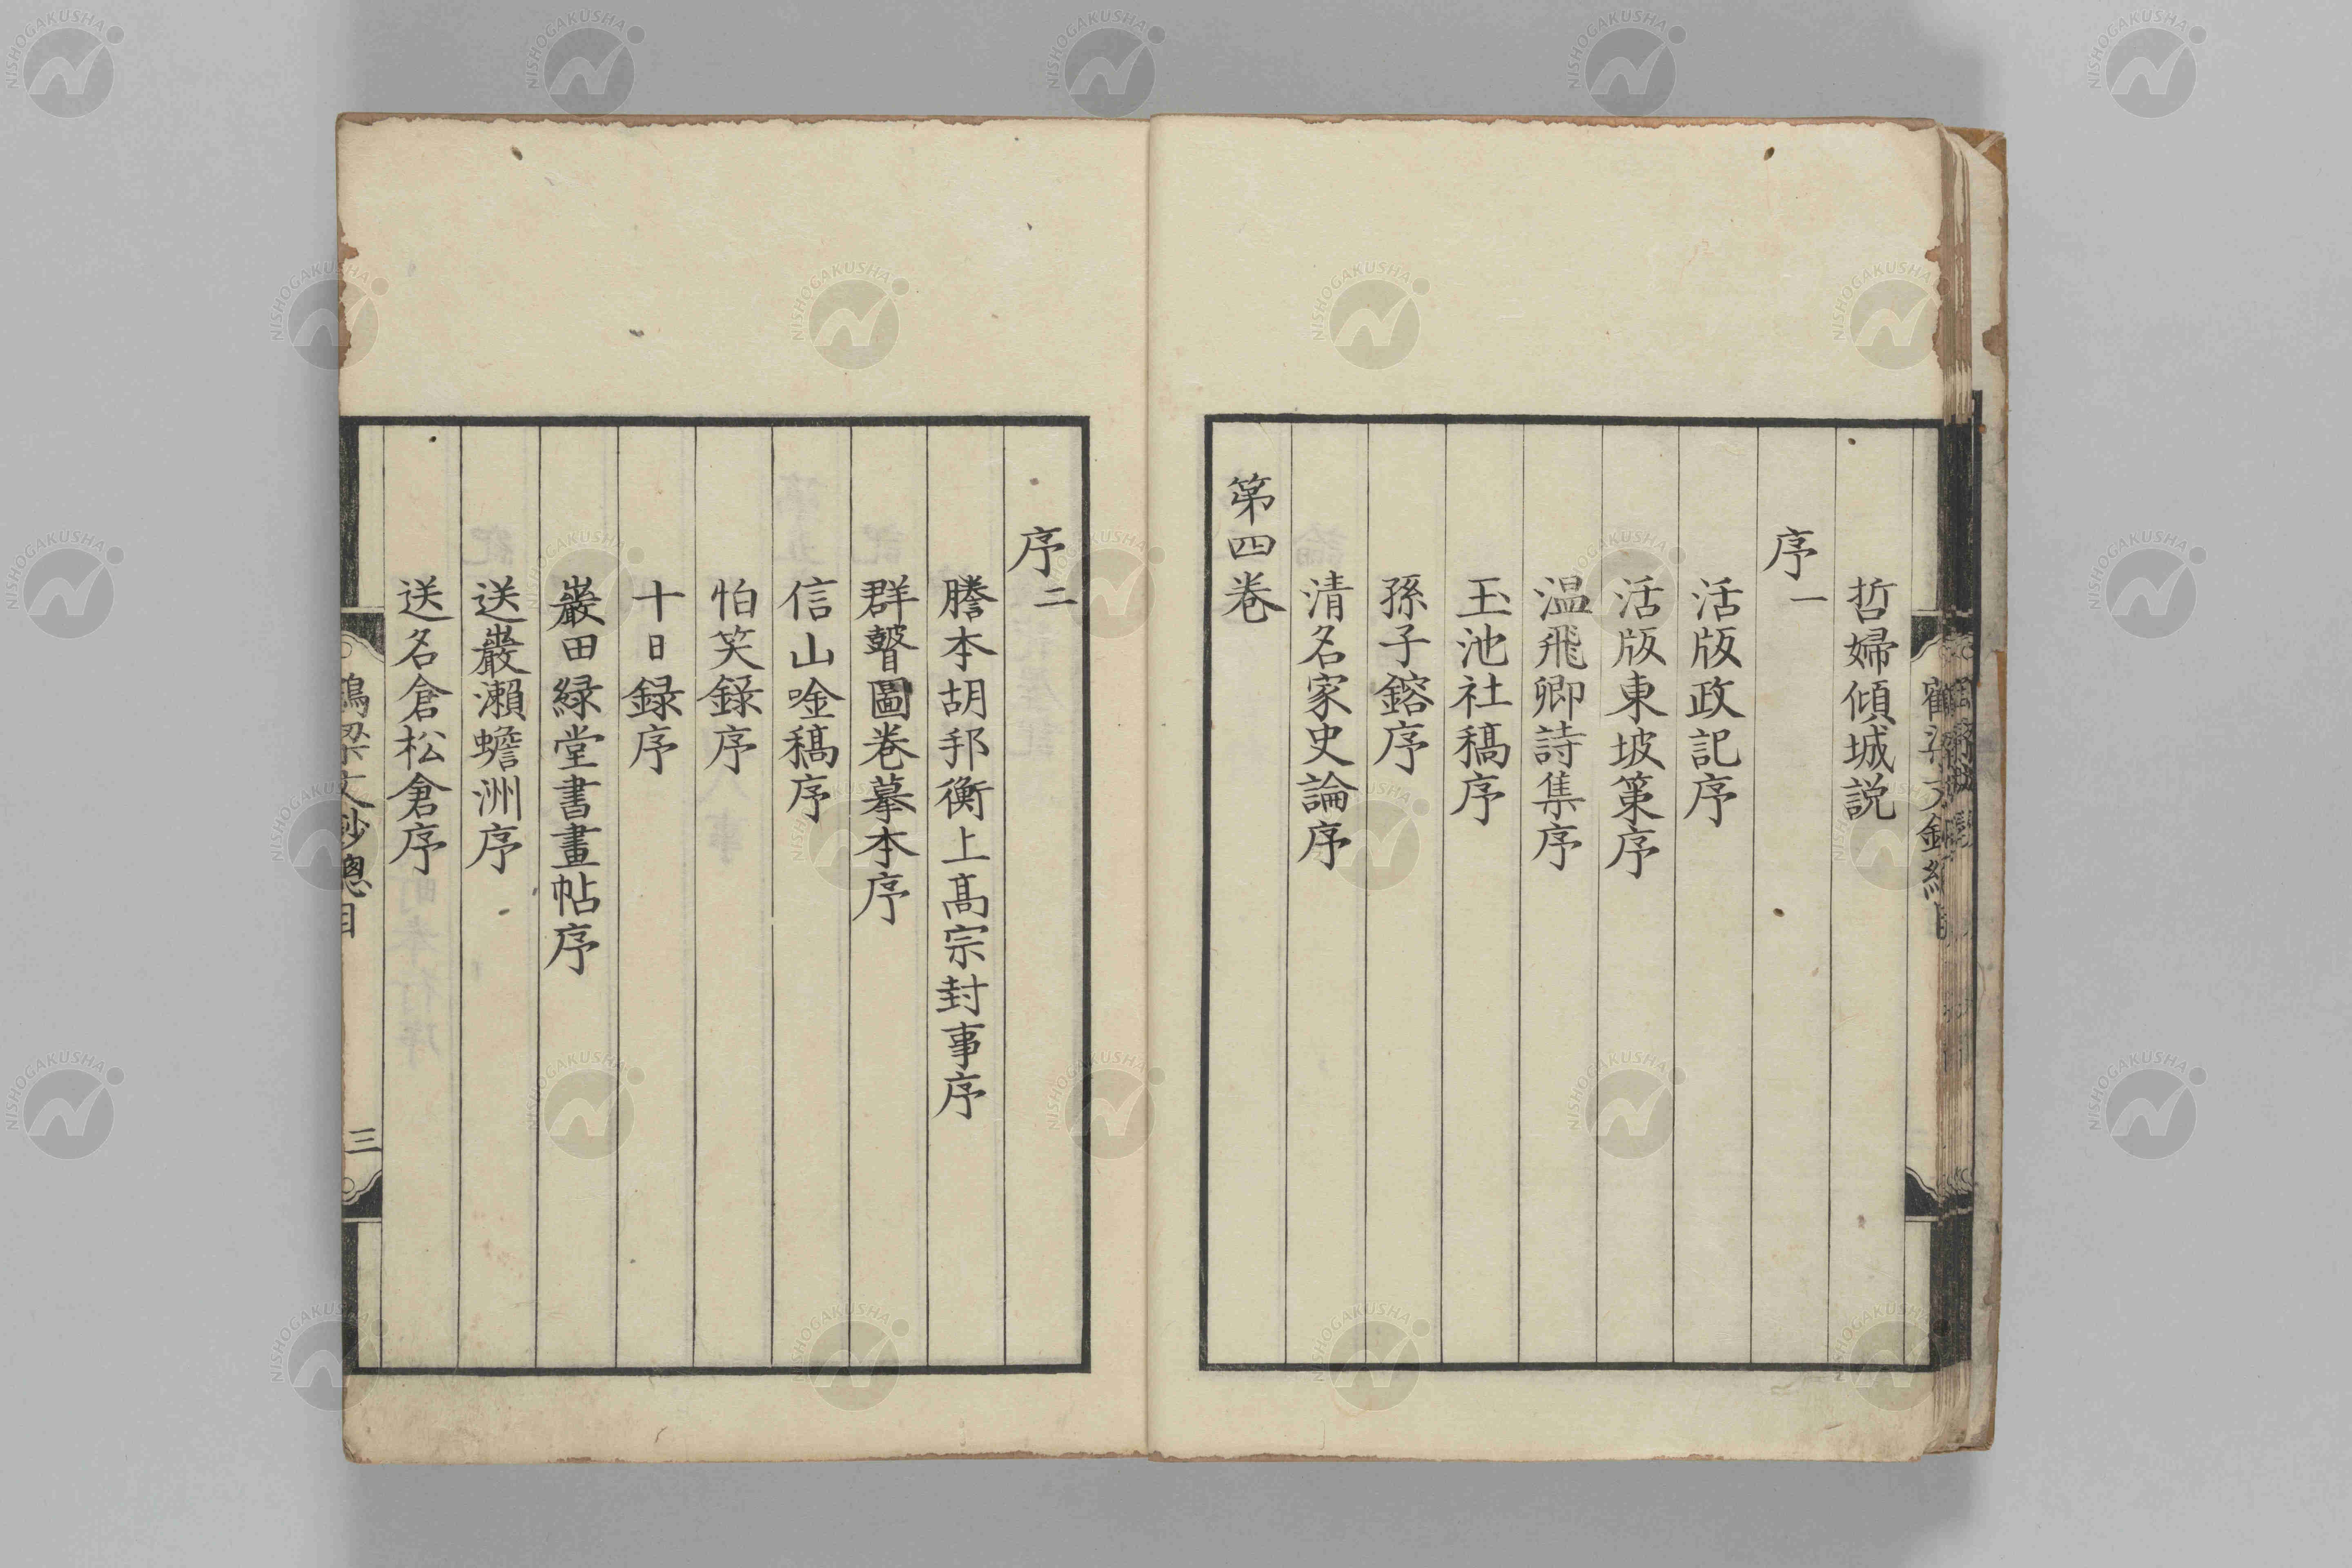 哲婦傾城説
序一
活版政記序
活版東坡策序
温飛卿詩集序
玉池社稿序
孫子鎔序
清名家史論序
第四巻
序二
謄本胡邦衡上高宗封事序
群瞽圖巻摹本序
信山唫稿序
怕笑録序
十日録序
巖田緑堂書畫帖序
送巖瀬蟾洲序
送名倉松倉序
鶴梁文鈔總目
三
NISHOGAKUSHA